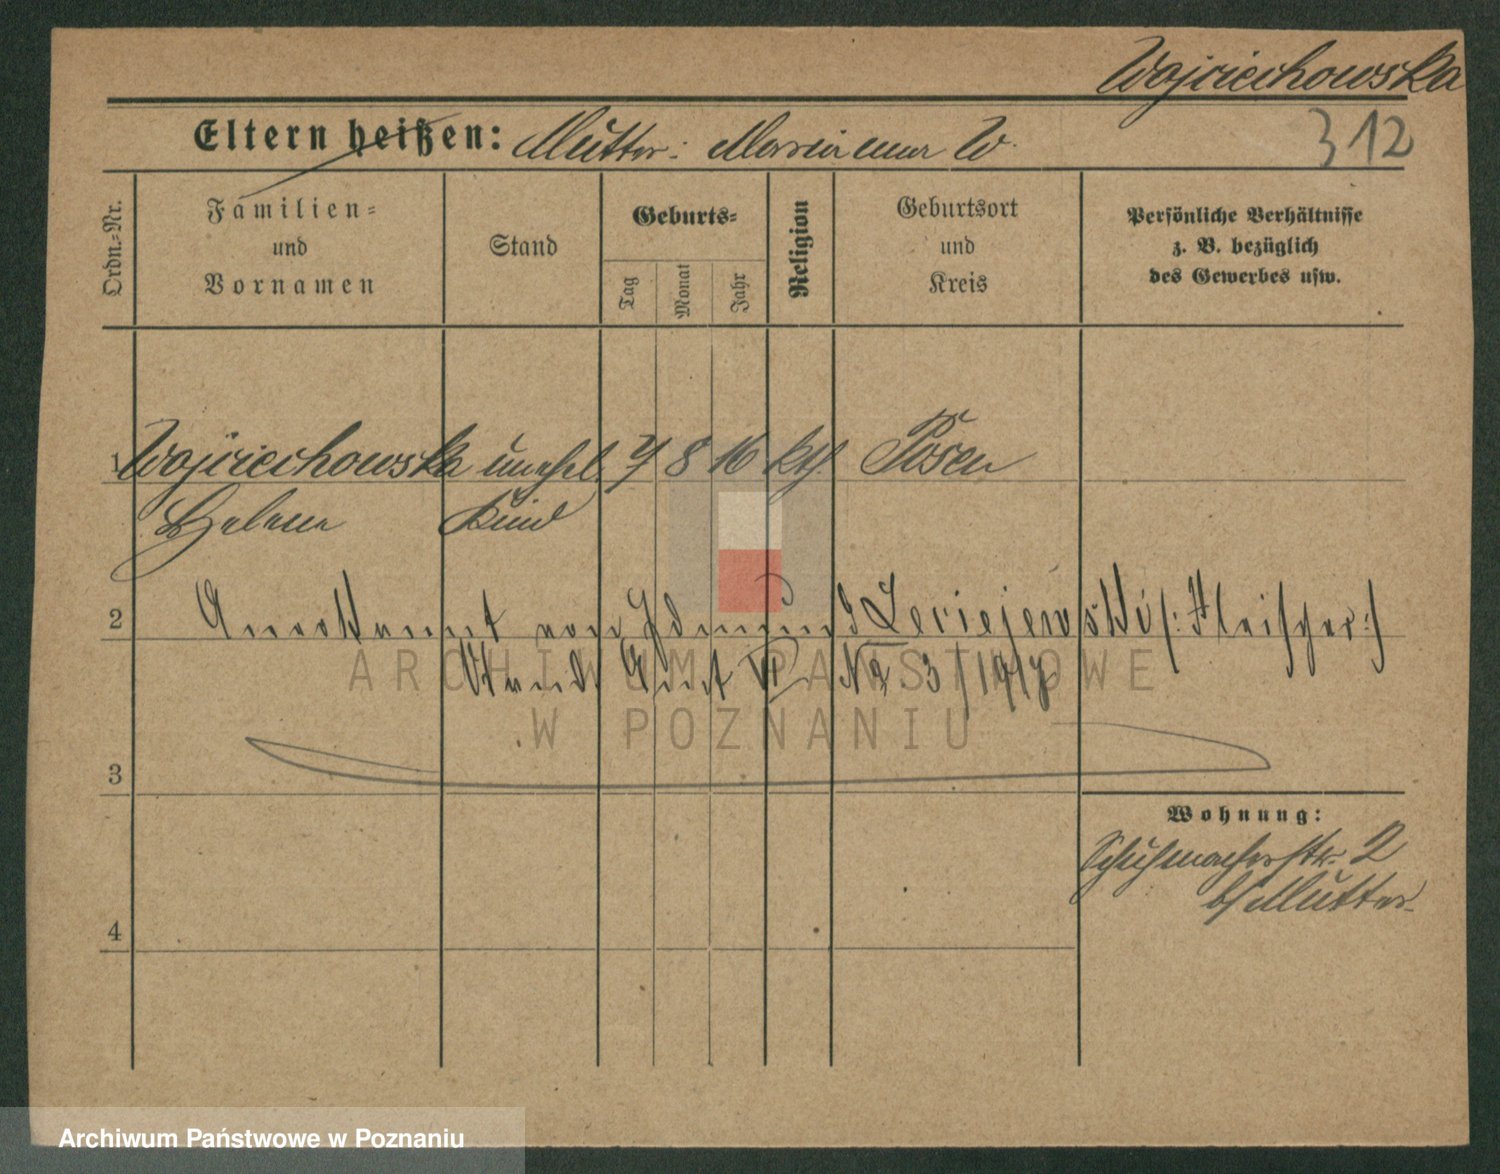 Wojciechowska
Eltern heißen: Mutter: Marianna W.
312
Ordn.-Nr.
Familien-
und
Vornamen
Stand
Geburts-
Tag
Monat
Jahr
Religion
Geburtsort
und
Kreis
Persönliche Verhältnisse
z. B. bezüglich
des Gewerbes usw.
1 Wojciechowska unehel. 7 8 16 kth. Posen
Helena Kind
2 Anerkannt von Edmund /: Fleischer :/
Amt VI No 3/1917
ARCHIWUM PAŃSTWOWE
W POZNANIU
3
Wohnung:
Schuhmacherstr. 2
b/ Mutter.
4
Archiwum Państwowe w Poznaniu